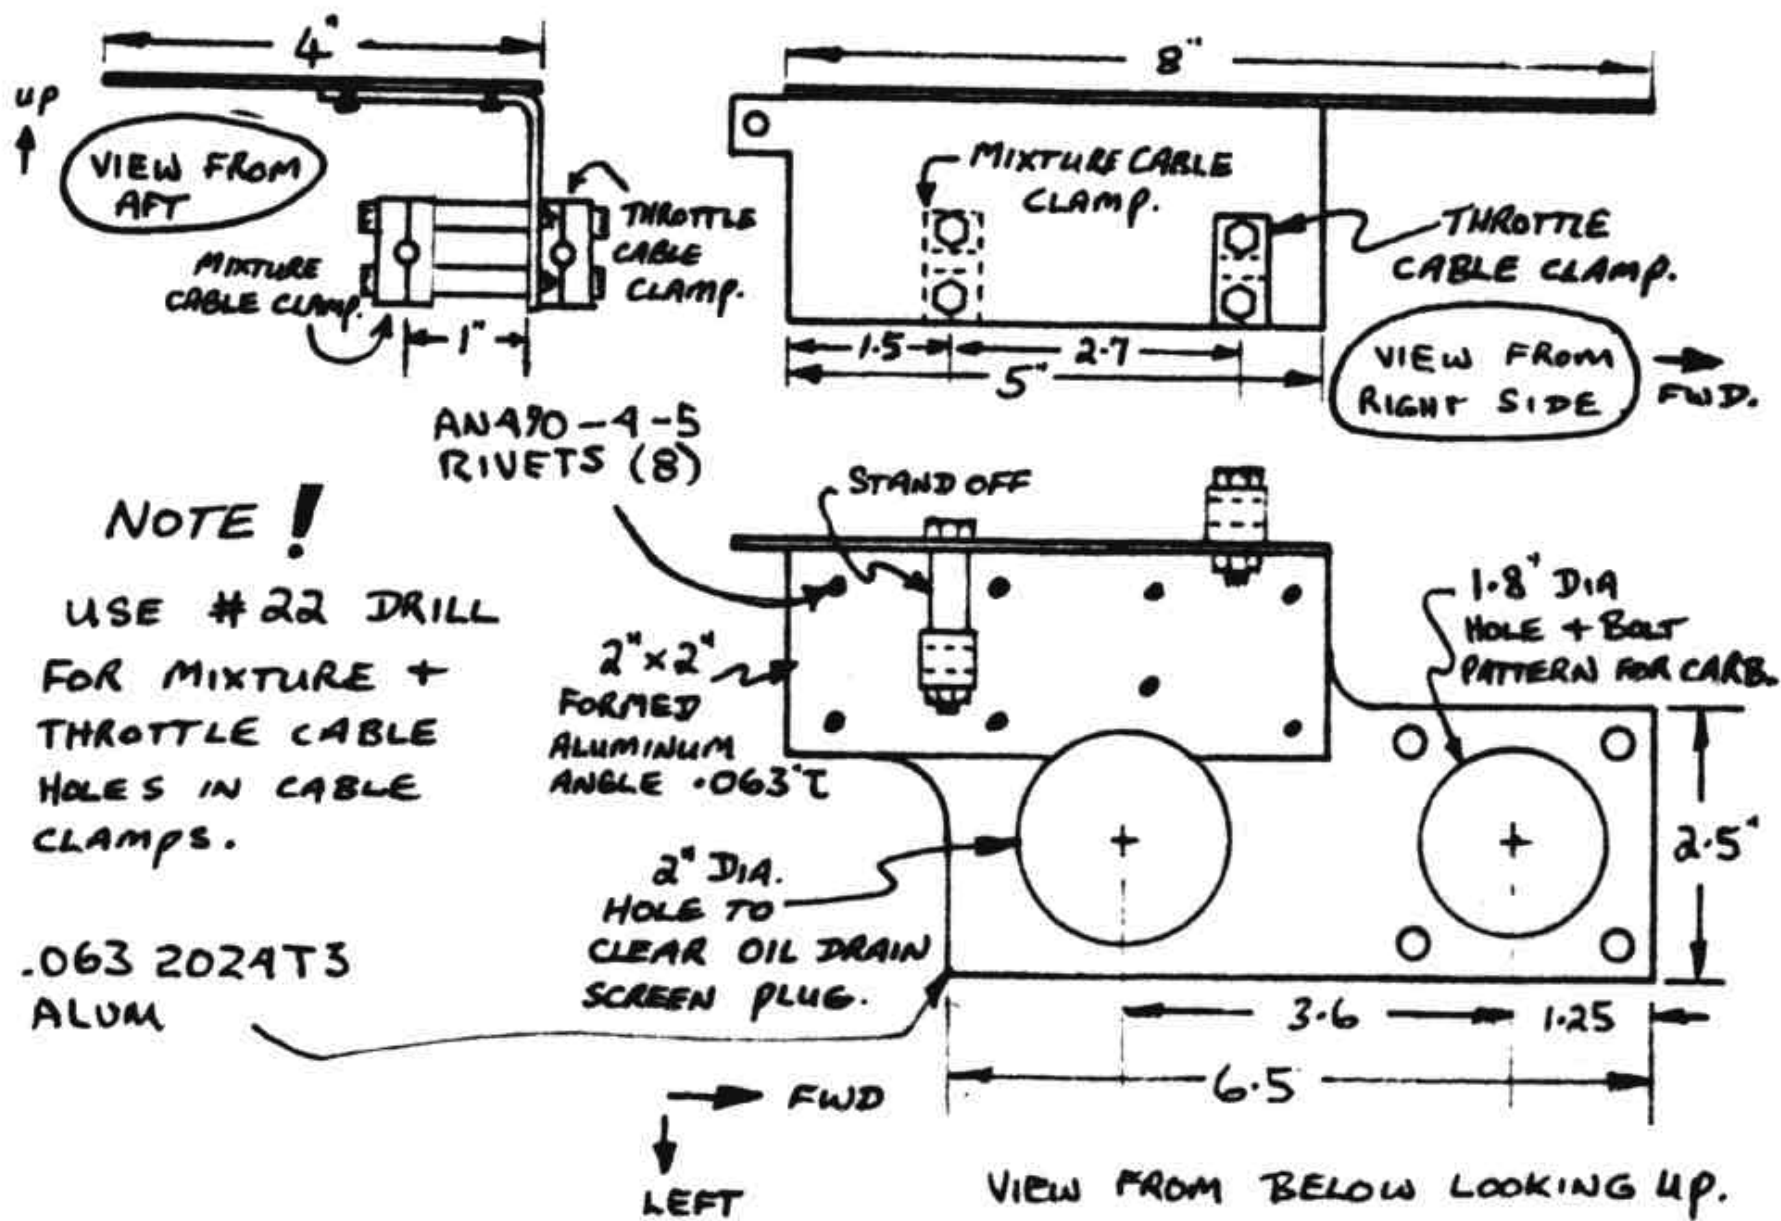 4"
UP
VIEW FROM
AFT
MIXTURE
CABLE CLAMP.
THROTTLE
CABLE
CLAMP.
1"
8"
MIXTURE CABLE
CLAMP.
THROTTLE
CABLE CLAMP.
1.5
2.7
5"
VIEW FROM
RIGHT SIDE
FWD.
AN490-4-5
RIVETS (8)
STAND OFF
NOTE!
USE #22 DRILL
FOR MIXTURE +
THROTTLE CABLE
HOLES IN CABLE
CLAMPS.
2"x2"
FORMED
ALUMINUM
ANGLE .063"T
1.8" DIA
HOLE + BOLT
PATTERN FOR CARB.
2.5"
2" DIA.
HOLE TO
CLEAR OIL DRAIN
SCREEN PLUG.
.063 2024T3
ALUM
3.6
1.25
6.5
FWD
LEFT
VIEW FROM BELOW LOOKING UP.